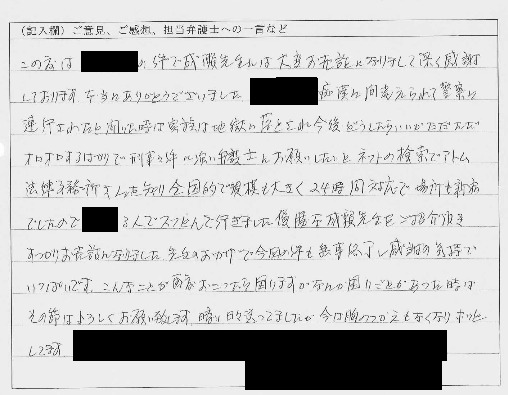 (記入欄) ご意見、ご感想、担当弁護士への一言など
この度は の件で成瀬先生には大変お世話になりまして深く感謝
しております 本当にありがとうございました 痴漢に間違えられて警察に
連行されたと聞いた時は家族は地獄に落とされ今後どうしたらいいかただただ
オロオロするばかりで刑事事件に強い弁護士にお願いしたいとネットの検索でアトム
法律事務所さんを知り全国的で規模も大きく24時間対応で場所も新宿
でしたので 3人でスっとんで行きました 優勝 成瀬先生をご紹介頂き
すっかりお世話になりました 先生のおかげで今回の件も無事終了し感謝の気持で
いっぱいです。こんなことが再度おこったら困りますがなんか困りごとがあった時は
その節はよろしくお願い致します 暗い日々送ってましたが 今は胸のつかえもなくなりホッと
してます